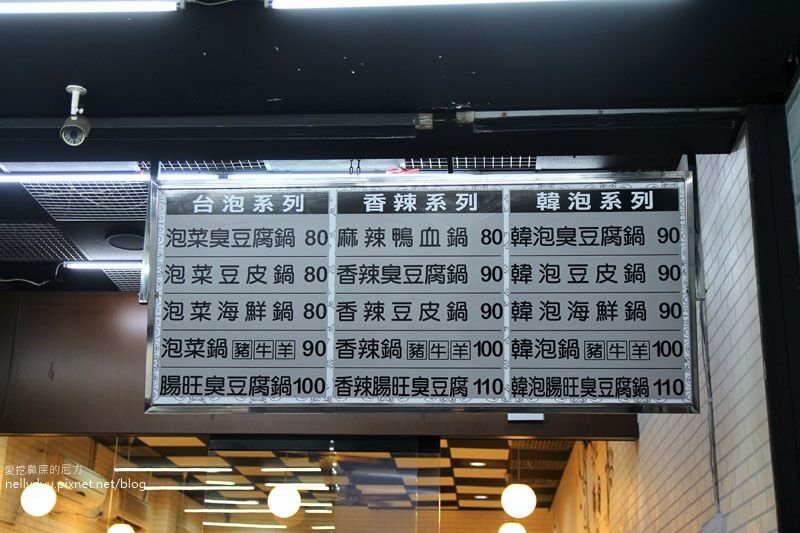 台泡系列
泡菜臭豆腐鍋 80
泡菜豆皮鍋 80
泡菜海鮮鍋 80
泡菜鍋 豬 牛 羊 90
腸旺臭豆腐鍋 100
香辣系列
麻辣鴨血鍋 80
香辣臭豆腐鍋 90
香辣豆皮鍋 90
香辣鍋 豬 牛 羊 100
香辣腸旺臭豆腐 110
韓泡系列
韓泡臭豆腐鍋 90
韓泡豆皮鍋 90
韓泡海鮮鍋 90
韓泡鍋 豬 牛 羊 100
韓泡腸旺臭豆腐鍋 110
愛挖鼻屎的厄方
nellydyu.pixnet.net/blog